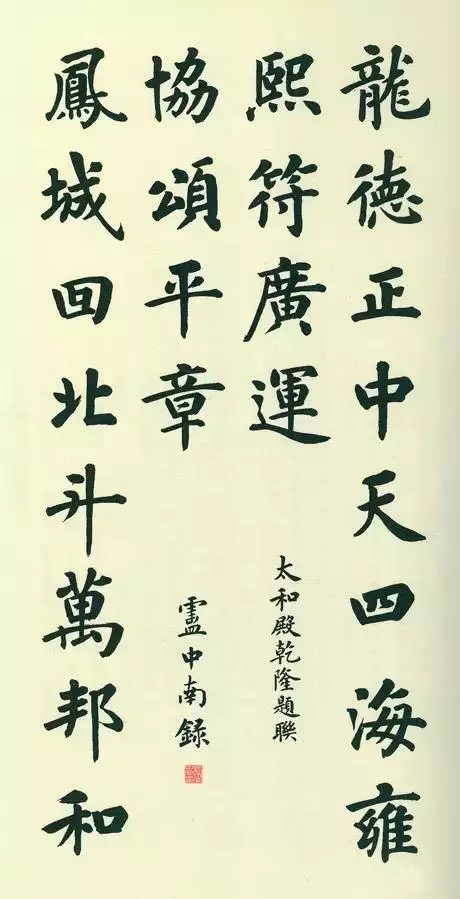 龍徳正中天四海雍
熙符廣運
太和殿乾隆題聯
鳳城囬北斗萬邦和
協頌平章
盧中南録